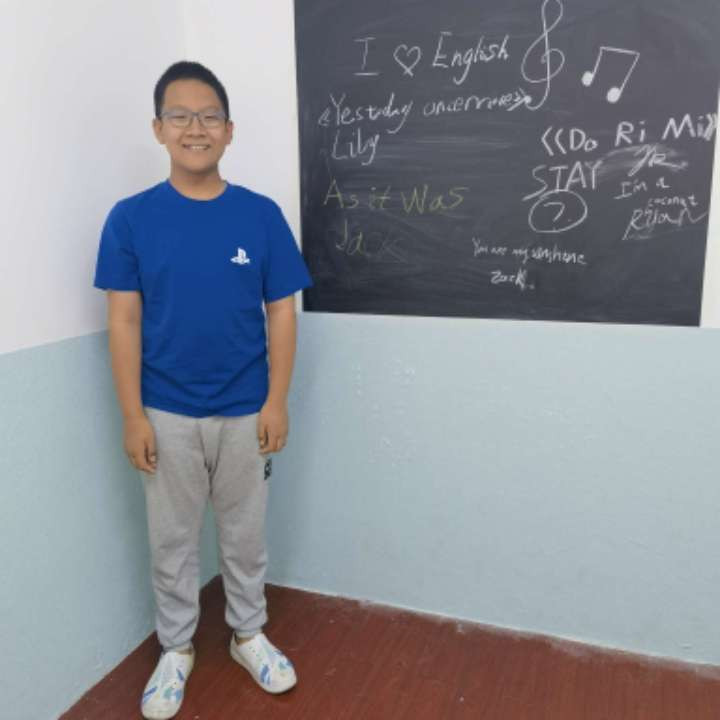 I ♡ English
《Yesterday once more》
Lily
As it was
Jack
《Do Ri Mi》
STAY
7.
I'm a
coconut
Ryan
You are my sunshine
Zack.